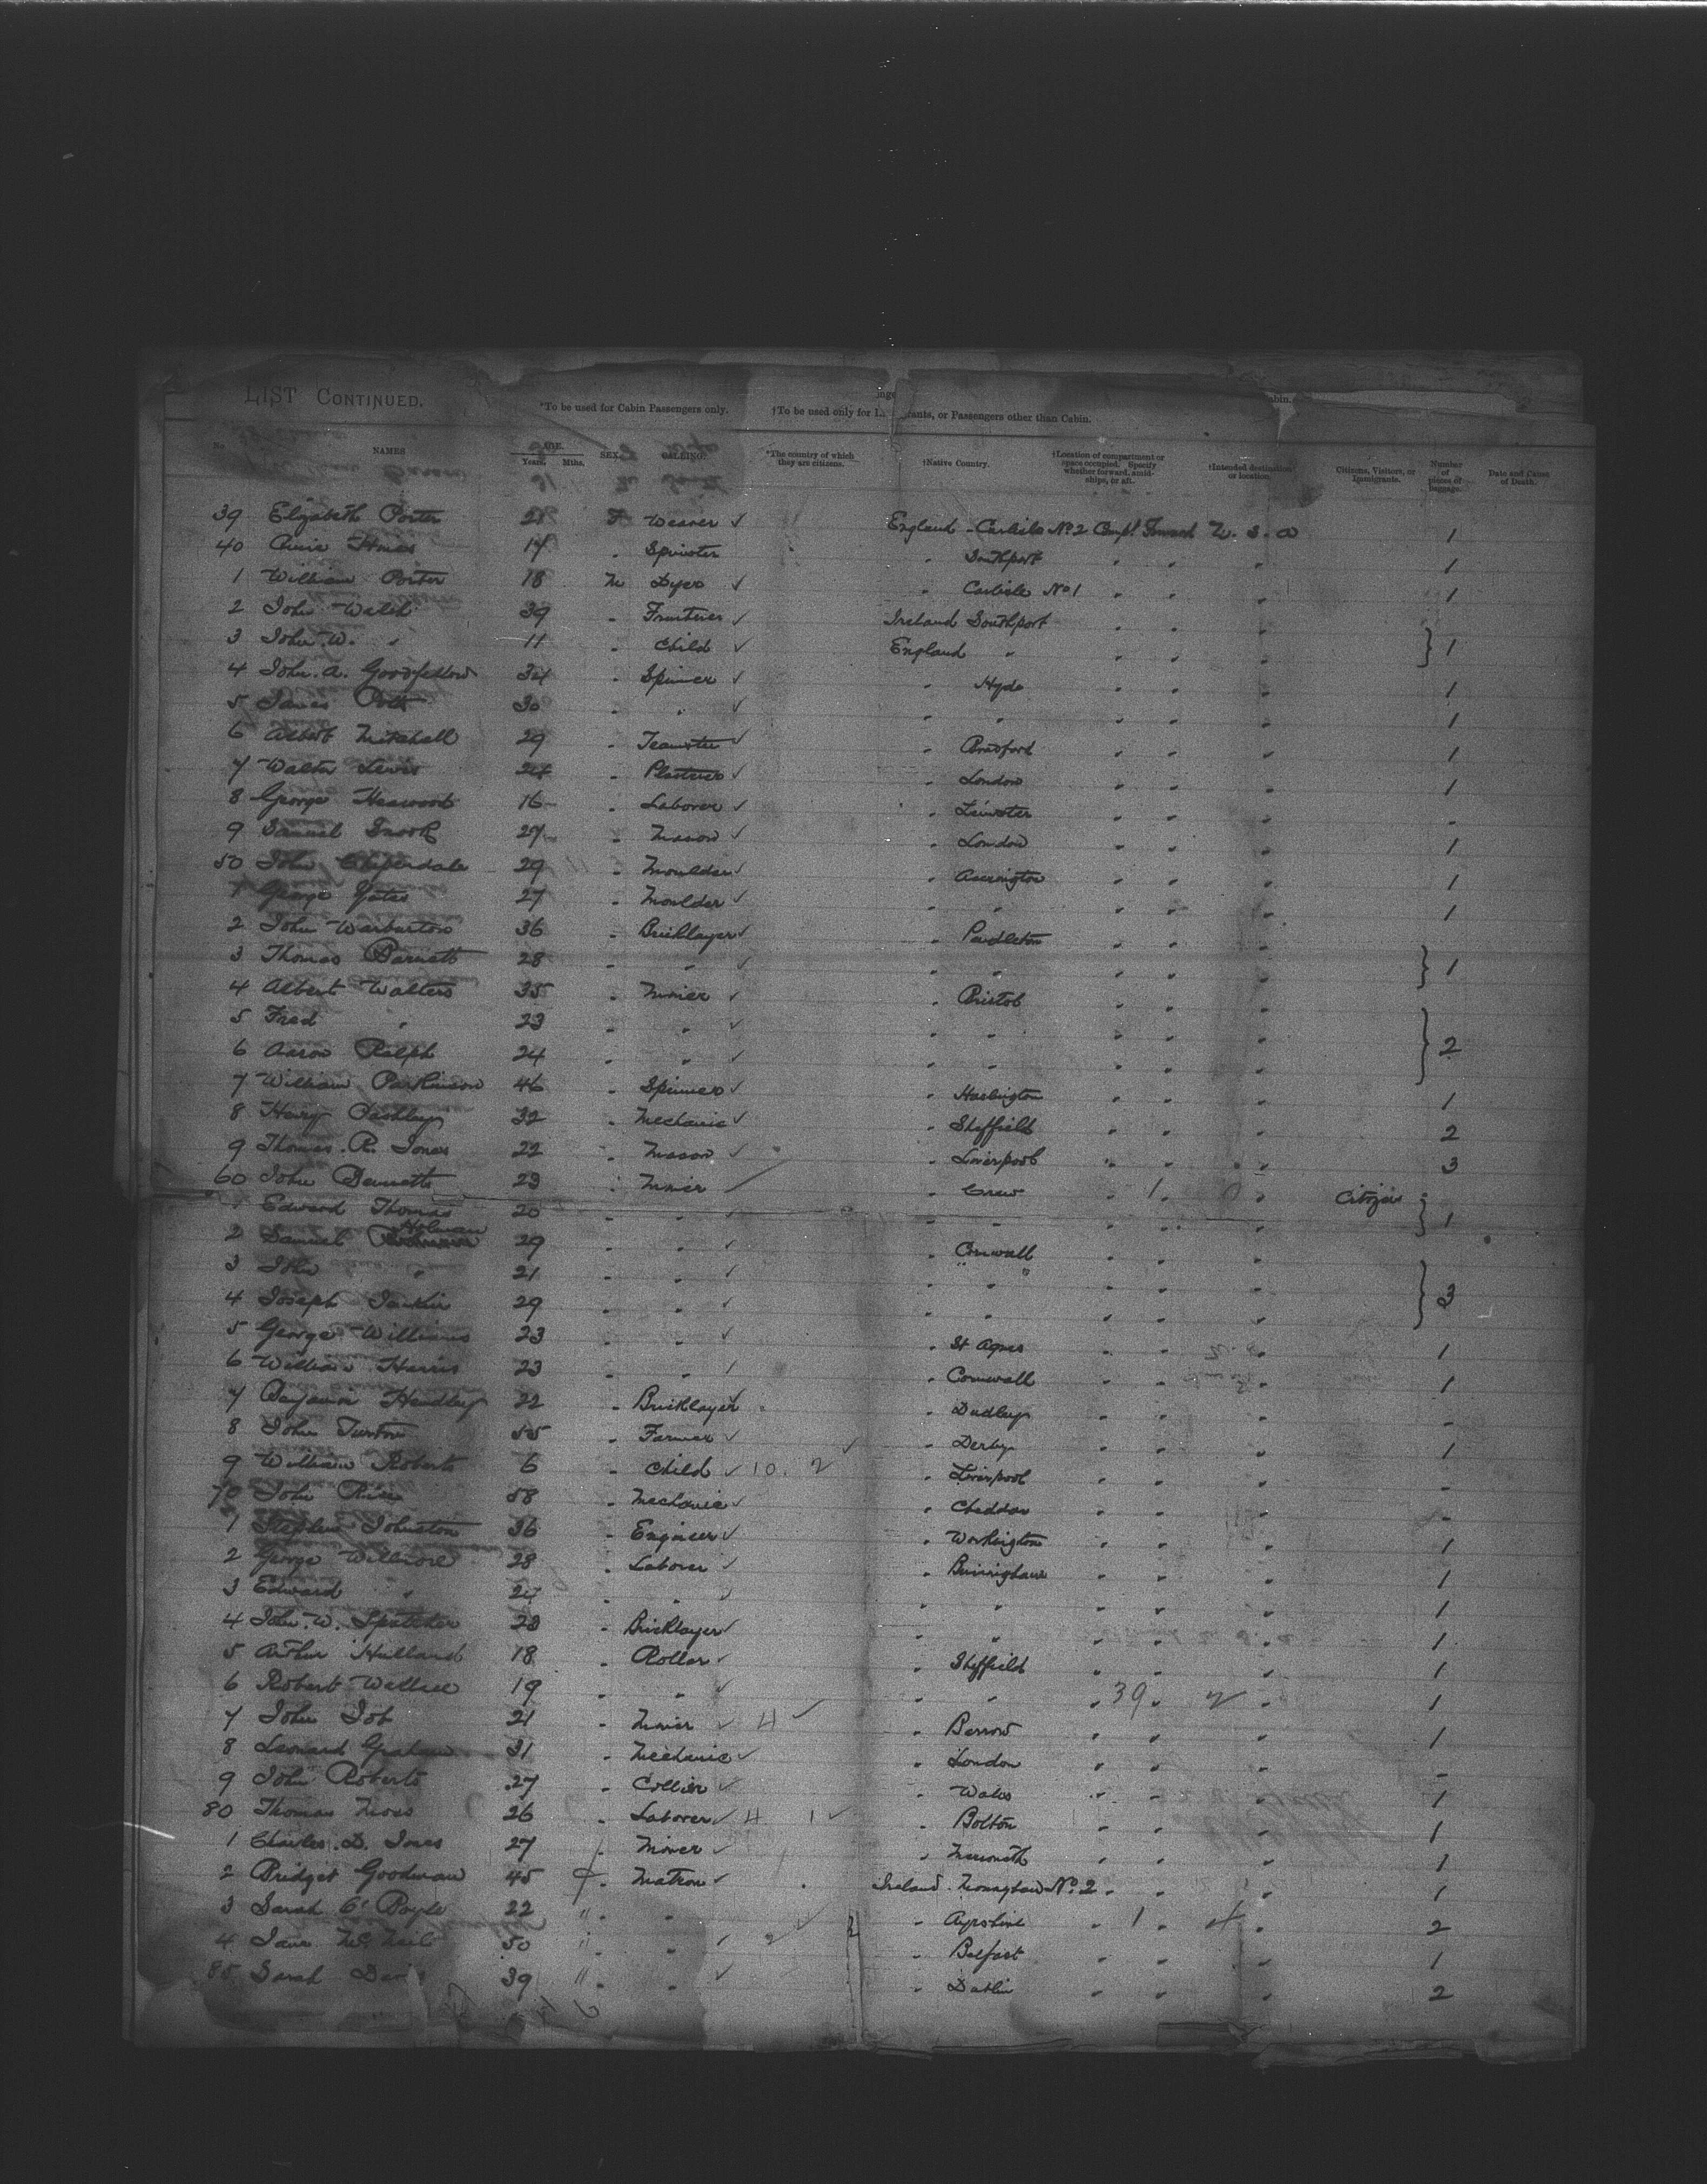 LIST CONTINUED.
*To be used for Cabin Passengers only. †To be used only for rants, or Passengers other than Cabin.
No. NAMES AGE. Years. Mths. SEX. CALLING. *The country of which they are citizens. †Native Country. †Location of compartment or space occupied. Specify whether forward, amidships, or aft. †Intended destination or location. Citizens, Visitors, or Immigrants. Number of pieces of Baggage. Date and Cause of Death.
39 Elizabeth Porter 21 F Weaver ✓ England - Carlisle No 2 Compt. Forward U. S. a 1
40 14 " Spinster " Southport " " " 1
1 William Porter 18 M Dyer ✓ " Carlisle No 1 " " " 1
2 John Walsh 39 " Fruiterer ✓ Ireland Southport " " "
3 John. W. " 11 " Child ✓ England " " " " } 1
4 John. A. Goodfellow 34 " Spinner ✓ " Hyde " " " 1
5 James 30 " " ✓ " " " " " 1
6 Albert Mitchell 29 " Teamster ✓ " Bradford " " " 1
7 Walter Lewis 24 " Plasterer ✓ " London " " " 1
8 George 16 " Laborer ✓ " Leinster " " " -
9 Samuel Snook 27 " Mason ✓ " London " " " 1
50 John 29 " Moulder ✓ " Accrington " " " 1
1 George Yates 27 " Moulder ✓ " " " " " 1
2 John Warburton 36 " Bricklayer ✓ " Pendleton " " "
3 Thomas Barnett 28 " " ✓ " " " " " } 1
4 Albert Walters 35 " Miner ✓ " Bristol " " "
5 Fred " 23 " " ✓ " " " " "
6 Aaron Ralph 24 " " ✓ " " " " " } 2
7 William Parkinson 46 " Spinner ✓ " Haslington " " " 1
8 Harry Pashley 32 " Mechanic ✓ " Sheffield " " " 2
9 Thomas. R. Jones 22 " Mason ✓ " Liverpool " " " 3
60 John Bennett 23 " Miner " Crew " 1 " 0 " Citizen
1 Edward Thomas 20 " " ✓ " " " " " } 1
2 Samuel Holman 29 " " ✓ " Cornwall " " "
3 John " 21 " " ✓ " " " " "
4 Joseph Jenkin 29 " " ✓ " " " " " } 3
5 George Williams 23 " " ✓ " St Agnes " " " 1
6 William Harris 23 " " " Cornwall " " " 1
7 Benjamin Hendley 22 " Bricklayer ✓ " Dudley " " " -
8 John Turton 55 " Farmer ✓ ✓ " Derby " " " 1
9 William Roberts 6 " Child ✓ 10. 2 " Liverpool " " " -
70 John 58 " Mechanic ✓ " Cheddar " " " -
1 Stephen Johnston 36 " Engineer ✓ " Workington " " " 1
2 George 28 " Laborer ✓ " Birmingham " " " 1
3 Edward " 24 " " ✓ " " " " " 1
4 John. W. 28 " Bricklayer ✓ " " " " " 1
5 Arthur Hilland 18 " Roller ✓ " Sheffield " " " 1
6 Robert Wallace 19 " " ✓ " " " 39 " " 1
7 John Job 21 " Miner ✓ 4 ✓ " Barrow " " " 1
8 Leonard Graham 31 " Mechanic ✓ " London " " " -
9 John Roberts 27 " Collier ✓ " Wales " " " 1
80 Thomas Moss 26 " Laborer ✓ 4 1 ✓ " Bolton " " " 1
1 Charles. D. Jones 27 " Miner ✓ " " " " 1
2 Bridget Goodman 45 F " Matron ✓ Ireland. Monaghan No. 2 " " " 1
3 Sarah O' Boyle 22 " " " ✓ " Ayrshire " 1 " 4 " 2
4 Jane McNeil 50 " " " ✓ " Belfast " " " 1
85 Sarah 39 " " " ✓ " Dublin " " " 2